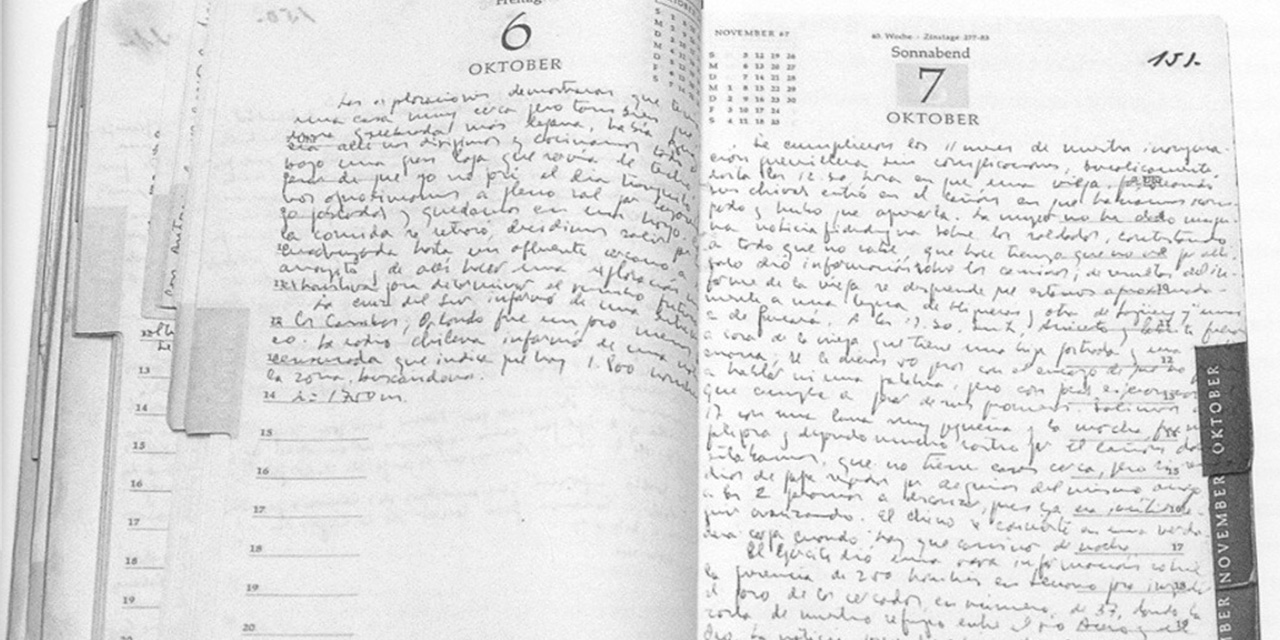 150.
Freitag
6
OKTOBER
Las exploraciones demostraron que
una casa muy cerca pero también que
quebrada más lejana, había
allí nos dirigimos y cocinamos todo
bajo una gran laja que servía de techo
pesar de que yo no pasé el día tranquilo
nos aproximamos a pleno sol por
poblados y quedamos en un hoyo.
la comida se retrasó, decidimos salir
madrugada hasta un afluente cercano a
arroyito y de allí hacer una exploración
exhaustiva para determinar el rumbo futuro
La cruz del sur informó de una
los Cambas; Orlando fue un poco menos
co. La radio chilena informó de una
censurada que indica que hay 1.800 hombres
la zona buscándonos.
h = 1750 m.
12
13
14
15
16
17
18
19
14
15
16
17
18
19
20
NOVEMBER 67
S 5 12 19 26
M 6 13 20 27
D 7 14 21 28
M 1 8 15 22 29
D 2 9 16 23 30
F 3 10 17 24
S 4 11 18 25
40. Woche
Sonnabend
7
OKTOBER
151.
Se cumplieron los 11 meses de nuestra inaugura-
ción guerrillera sin complicaciones, bucólicamente,
hasta las 12.30, hora en que una vieja, pastoreando
sus chivas entró en el cañón en que habíamos acam-
pado y hubo que apresarla. La mujer no ha dado ningu-
na noticia fidedigna sobre los soldados, contestando
a todo que no sabe, que hace tiempo que no va por allí
solo dió información sobre los caminos; de resultas del in-
forme de la vieja se desprende que estamos aproximada-
mente a una legua de Higueras y otra de Jagüey y unas
2 de Pucará. A las 17.30, Inti, Aniceto y Pablito fueron
a casa de la vieja que tiene una hija postrada y una
enana; se le dieron 50 pesos con el encargo de que no
a hablar ni una palabra, pero con pocas esperanzas
que cumpla a pesar de sus promesas. Salimos
17 con una luna muy pequeña y la marcha fue
fatigosa y dejando mucho rastro por el cañón donde
estábamos, que no tiene casas cerca, pero sí sem-
bradíos de papa regados por acequias del mismo arroyo
a las 2 paramos a descansar, pues ya era inútil se-
guir avanzando. El chino se convierte en una verda-
dera carga cuando hay que caminar de noche.
El Ejército dió una rara información sobre
la presencia de 250 hombres en Serrano para impedir
el paso de los cercados, en número de 37, dando la
zona de nuestro refugio entre el río Acero y el
Oro. La noticia
12
17
OKTOBER
NOVEMBER